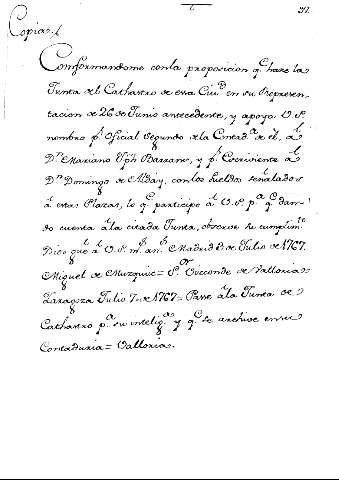 31.
Copia.
Comformandome con la proposicion q.e hace la
Junta del Cathastro de esa Ciu.d en su Represen-
tacion de 26 de Junio antecedente, y apoya V.S.
nombro p.r Oficial Segundo de la Contad.a de el, a
D.n Mariano Bazzano, y p.r Escriviente a
D.n Domingo de con los sueldos señalados
a estas Plazas, lo q.e participo a V.S. p.a q.e dan-
do cuenta a la citada Junta, observe su cumplim.to
Dios gu.e a V.S. m.s an.s Madrid de Julio de 1767.
Miguel de Muzquiz = S.or Vizconde de Valloria =
Zaragoza Julio 7 de 1767 = Passe a la Junta de
Cathastro p.a su intelig.a y q.e se archive en su
Contaduria = Valloria.